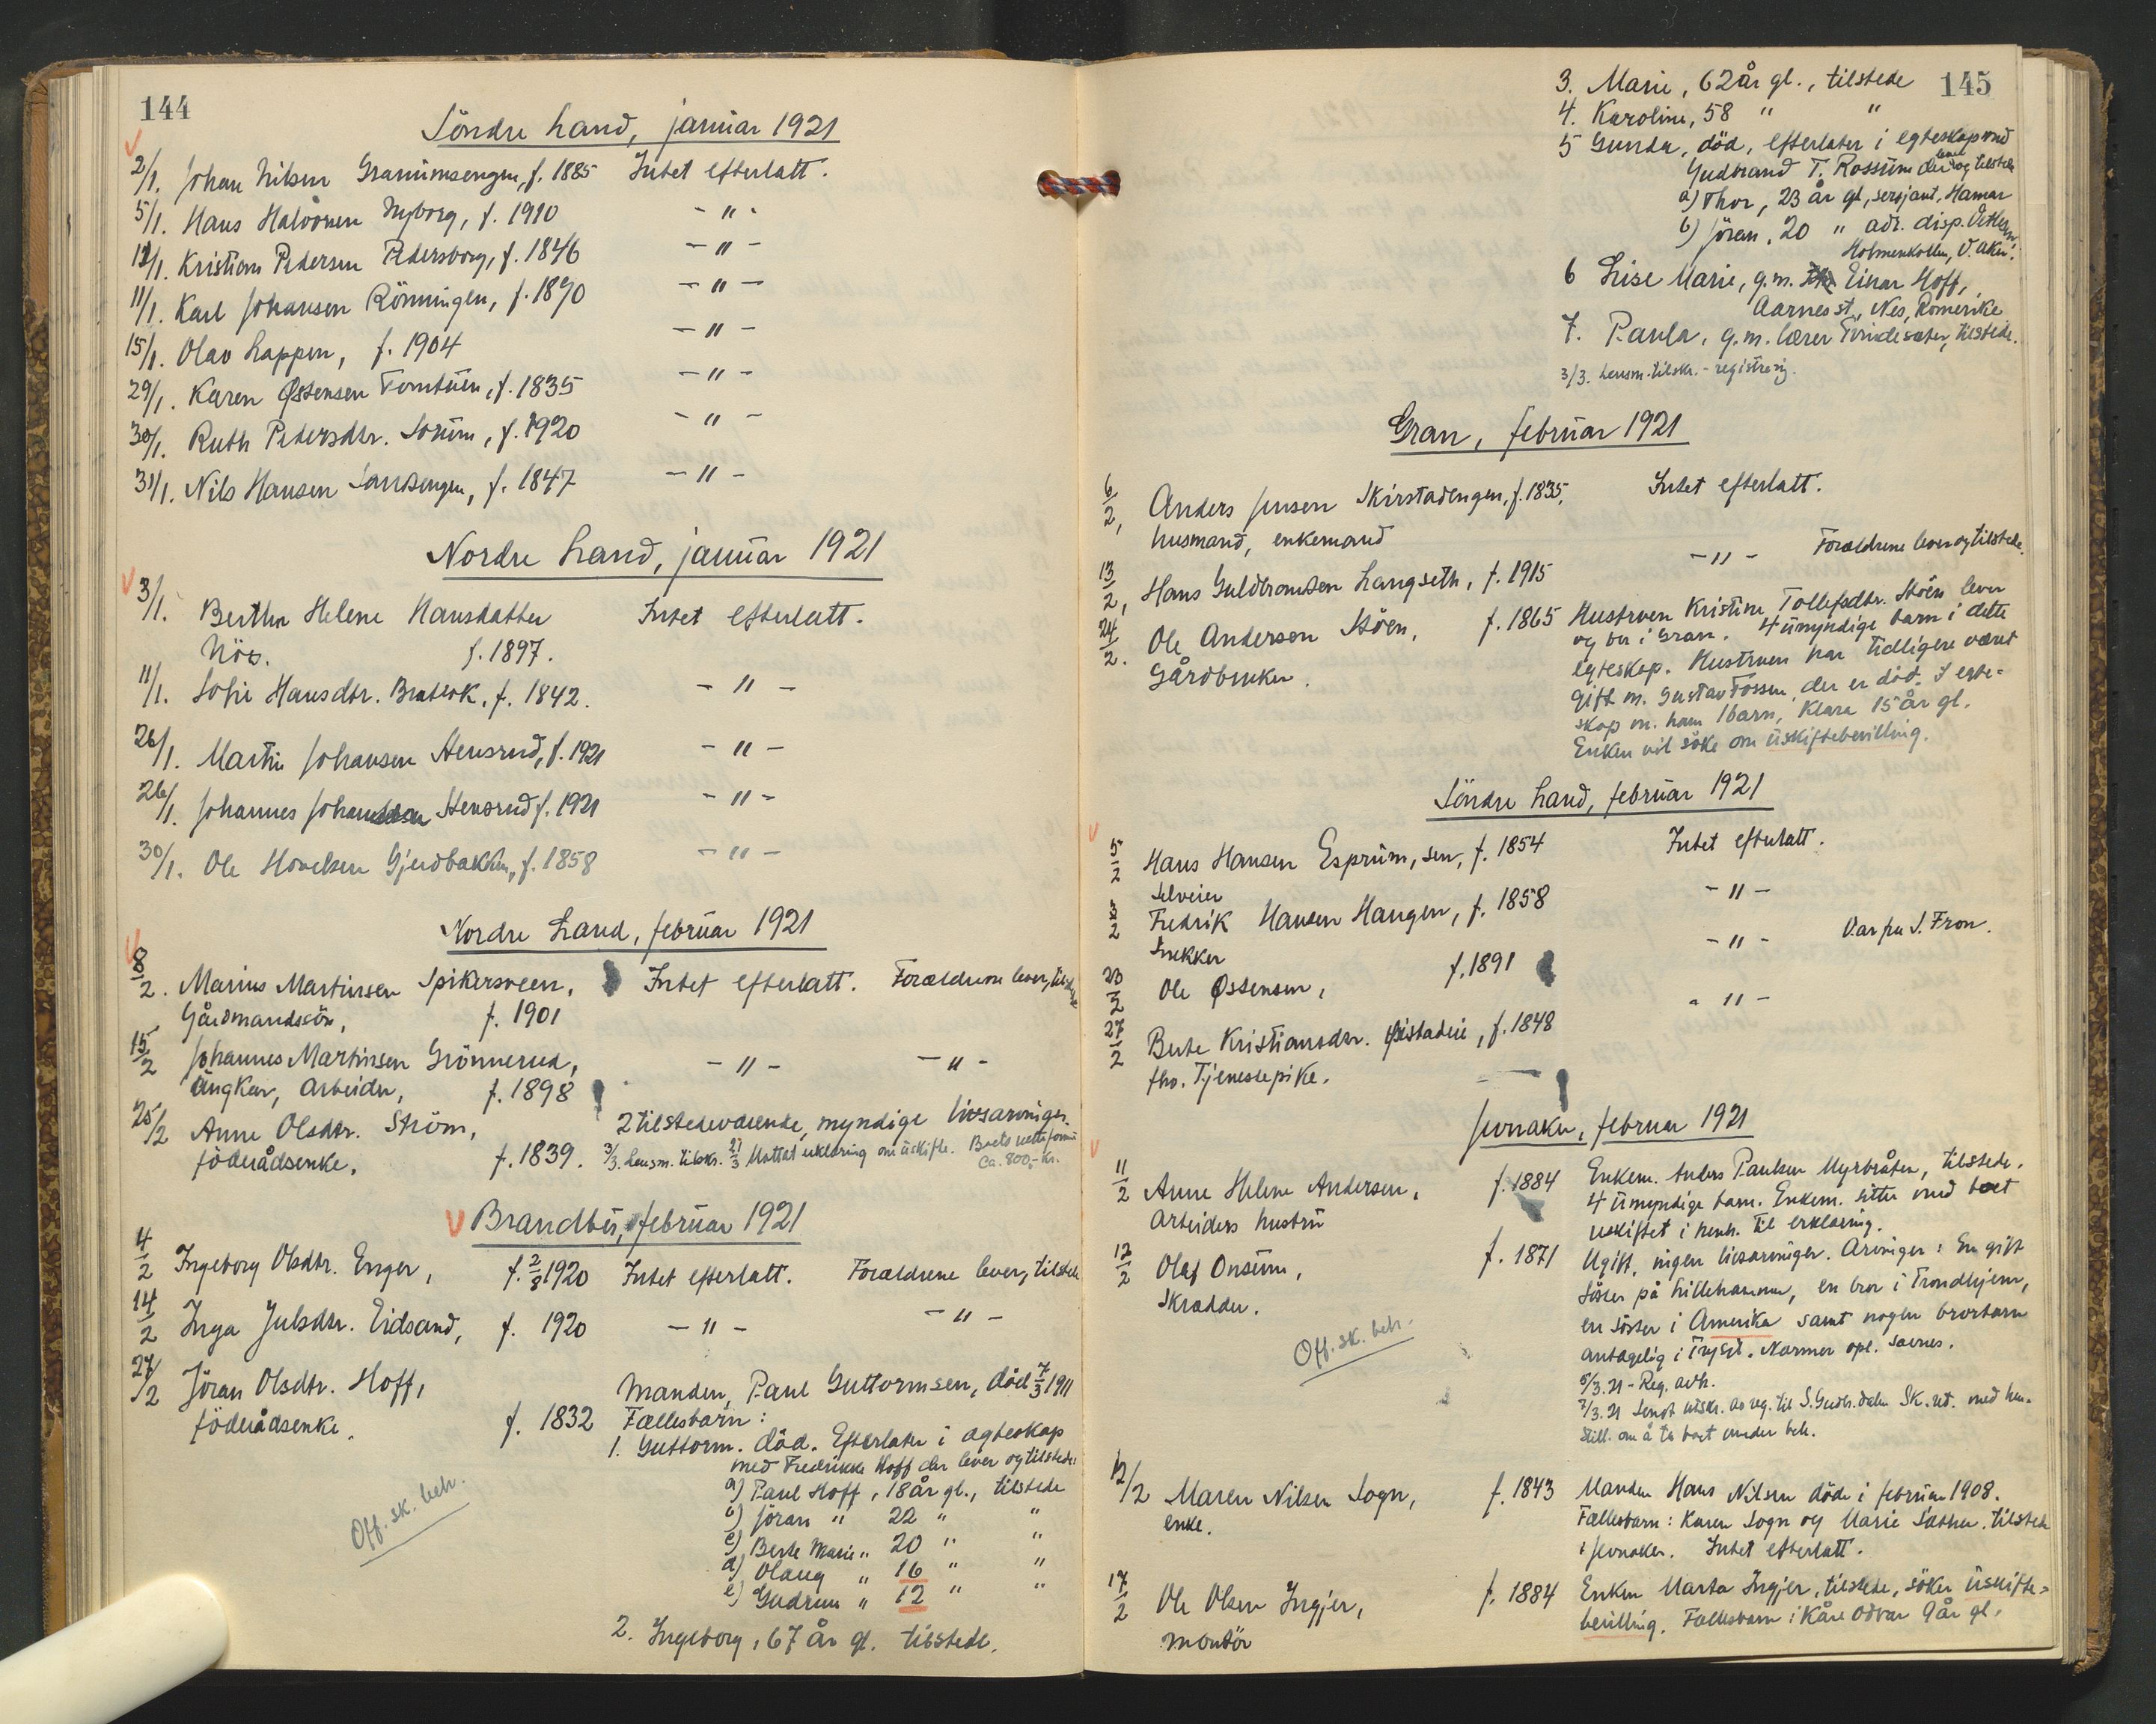 144
Söndre Land, januar 1921
2/1. Johan Nilsen Granumsengen, f. 1885 Intet efterlatt.
5/1. Hans Halvorsen Nyborg, f. 1910 - " -
12/1. Kristian Pedersen Pedersborg, f. 1846 - " -
11/1. Karl Johansen Rönningen, f. 1890 - " -
15/1. Olav Lappen, f. 1904 - " -
29/1. Karen Østensen Tomtüen, f. 1835 - " -
30/1. Ruth Pedersdtr. Sorüm, f. 1920 - " -
31/1. Nils Hansen Sandengen, f. 1847 - " -
Nordre Land, januar 1921
3/1. Berthe Helene Hansdatter Intet efterlatt.
f. 1897.
11/1. Sofie Hansdtr. Braterk, f. 1842. - " -
26/1. Martin Johansen Stensrud, f. 1921 - " -
26/1. Johannes Johansen Stensrud f. 1921 - " -
30/1. Ole Hovelsen Gjerdbakken, f. 1858 - " -
Nordre Land, februar 1921
8/2. Marius Martinsen Spikersveen, Intet efterlatt. Forældrene lever, tilstede
Gårdmandssön, f. 1901
15/2 Johannes Martinsen Grönnerud, - " - - " -
üngkar, arbeider, f. 1898
25/2 Anne Olsdtr. Ström, 2 tilstedeværende, myndige livsarvinger.
föderådsenke, f. 1839. 3/3. Lensm. tilskr. 21/3 Mottat erklæring om üskifte. Boets nettoformue
ca. 800,- kr.
Brandbü, februar 1921
4/2 Ingeborg Olsdtr. Enger, f. 2/8 1920 Intet efterlatt. Forældrene lever, tilstede
14/2 Inga Julsdtr. Eidsand, f. 1920 - " - - " -
27/2 Jöran Olsdtr. Hoff, Manden, Paul Guttormsen, död 7/3 1911
föderådsenke. f. 1832 Fællesbarn:
1. Guttorm. död. Efterlater i egteskap
med Fredrikke Hoff der lever og tilstede:
a) Paul Hoff, 18 år gl., tilstede
b) Jöran " 22 " "
c) Berte Marie " 20 " "
d) Olaug " 16 " "
e) Gudrun " 12 " "
Off. sk. beh.
2. Ingeborg, 67 år gl. tilstede.
145
3. Marie, 62 år gl., tilstede
4. Karoline, 58 " "
5 Gunda, död, efterlater i egteskap med
Gudbrand T. Rossüm der lever og tilstede
a) Thor, 23 år gl, serjant, Hamar
b) Jöran, 20 " adr. disp.
Holmenkollen, V. Aker.
6 Lise Marie, g.m. Einar Hoff,
Aarnes st., Nes, Romerike
7. Paula, g.m. lærer tilstede.
3/3. Lensm. tilskr. - registrering.
Gran, februar 1921
6/2, Anders Jensen Skirstadengen, f. 1835, Intet efterlatt.
husmand, enkemand
13/2, Hans Guldbrandsen Langseth, f. 1915 - " - Forældrene lever og tilstede.
24/2. Ole Anderson Stöen, f. 1865 Hustruen Kristine Tollefsdtr. Stöen lever
Gårdbruker. og bor i Gran. 4 ümyndige barn i dette
egteskap. Hustruen har tidligere været
gift m. Gustav Fossen, der er död. I egte-
skap m. ham 1 barn, Klara 15 år gl.
Enken vil söke om üskiftebevilling.
Söndre Land, februar 1921
5/2 Hans Hansen Esprüm, sen, f. 1854 Intet efterlatt.
Selveier
8/2 Fredrik Hansen Haugen, f. 1858 - " -
Snekker
23/2 Ole Østensen, f. 1891 - " - Var fra S. Fron.
27/2 Berte Kristiansdtr. f. 1848 - " -
fhv. Tjenestepike.
Jevnaker, februar 1921
11/2 Anne Helene Andersen, f. 1884 Enkem. Anders Paulsen Myrbråten, tilstede.
Arbeiders hustru 4 ümyndige barn. Enkem. sitter med boet
uskiftet i henh. til erklæring.
12/2 Olaf Onsüm, f. 1871 Ugift, ingen livsarvinger. Arvinger: En gift
Skrædder. söster på Lillehammer, en bror i Trondhjem,
en söster i Amerika samt nogen brorbarn
antagelig i Trysil. Nærmer opl. savnes.
Off. sk. beh.
5/3. 21 - Reg. avh.
7/3. 21 Sendt utskr. av reg. til S. Gudbr.dalen Sk.ret. med hen-
still. om å ta boet under beh.
12/2 Maren Nilsen Sogn, f. 1843 Manden Hans Nilsen döde i februar 1908.
enke. Fællesbarn: Karen Sogn og Marie Sæther. tilstede
i Jevnaker. Intet efterlatt.
17/2 Ole Olsen Ingjer, f. 1884 Enken Marta Ingjer, tilstede, söker üskifte-
Montör bevilling. Fællesbarn: Kåre Odvar 9 år gl.